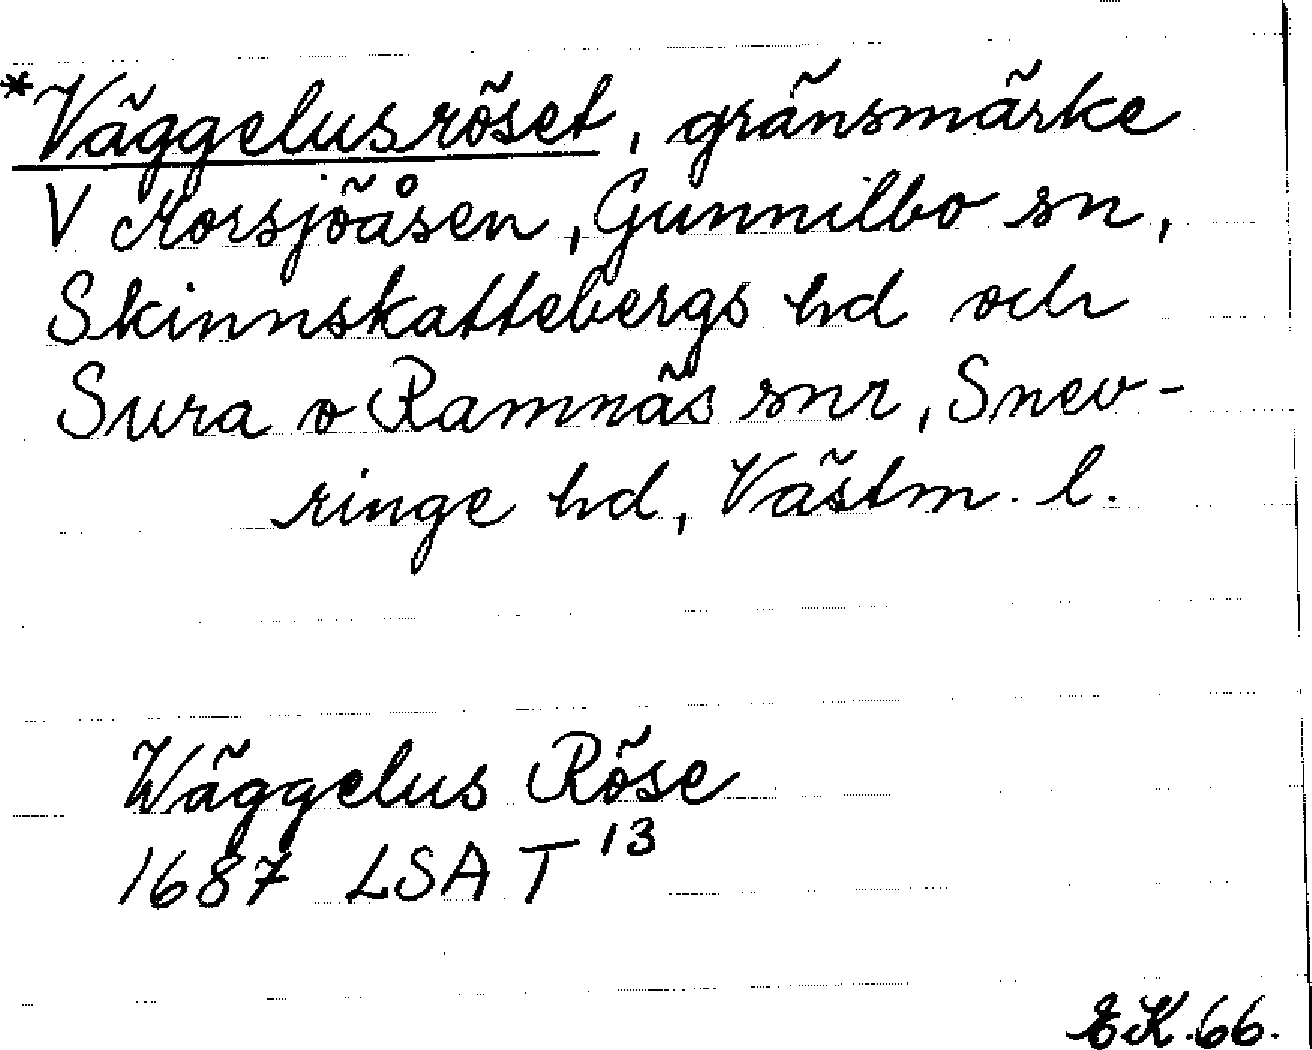 *Väggelusröset, gränsmärke
V Morsjöåsen, Gunnilbo sn,
Skinnskattebergs hd och
Sura o Ramnäs snr, Snev-
ringe hd, Västm. l.
Wäggelus Röse
1687 LSA T 13
EK.66.